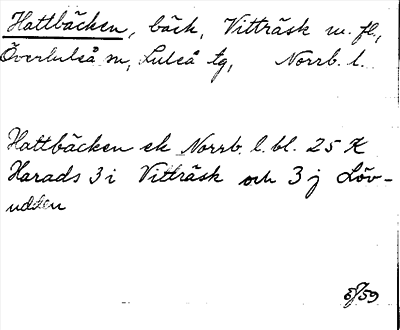 Hattbäcken, bäck, Vitträsk m. fl.,
Överluleå sn, Luleå tg, Norrb. l.
Hattbäcken ek Norrb. l. bl. 25 K
Harads 3 i Vitträsk och 3 j Löv-
udden
5/59